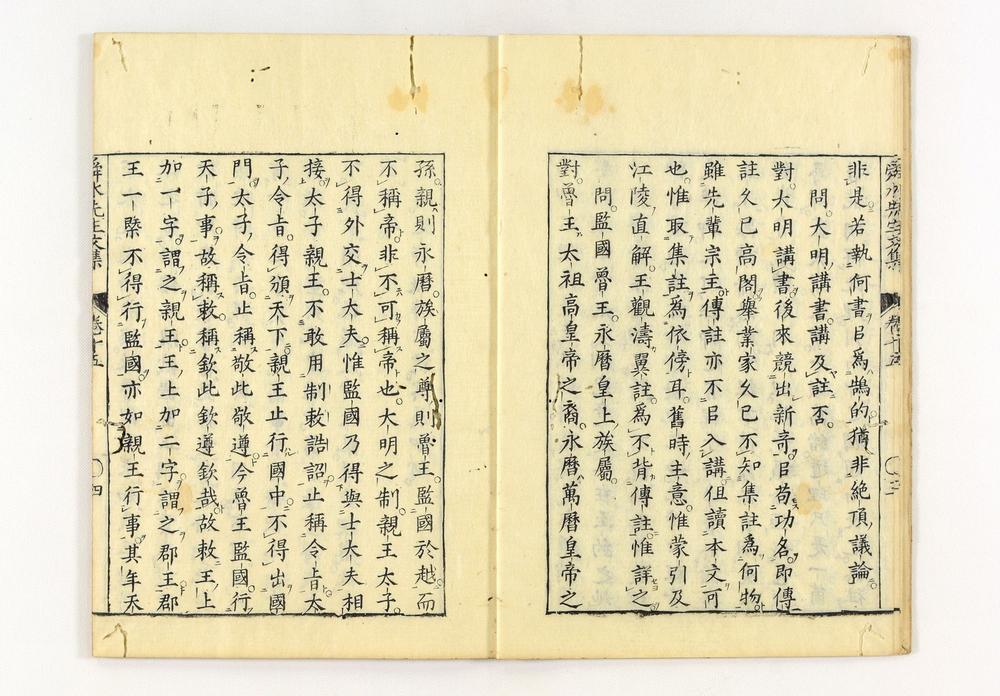 舜水先生文集
卷十五
非是若執何書㠯爲鵠的猶非絕頂議論
問大明講書講及註否
對大明講書後來競出新奇㠯苟功名卽傳
註久已高閣舉業家久已不知集註爲何物
雖先輩宗主傳註亦不㠯入講但讀本文可
也惟取集註爲依傍耳舊時主意惟蒙引及
江陵直解王觀濤翼註爲不背傳註惟詳之
問監國魯王永曆皇上族屬
對魯王太祖高皇帝之裔永曆萬曆皇帝之
孫親則永曆族屬之尊則魯王監國於越而
不稱帝非不可稱帝也大明之制親王太子
不得外交士大夫惟監國乃得與士大夫相
接太子親王不敢用制敕誥詔止稱令旨太
子令旨得頒天下親王止行國中不得出國
門太子令旨止稱敬此敬遵今魯王監國行
天子事故稱敕稱欽此欽遵欽哉故敕王上
加一字謂之親王王上加二字謂之郡王郡
王一槩不得行監國亦如親王行事其年天
舜水先生文集
卷十五
四